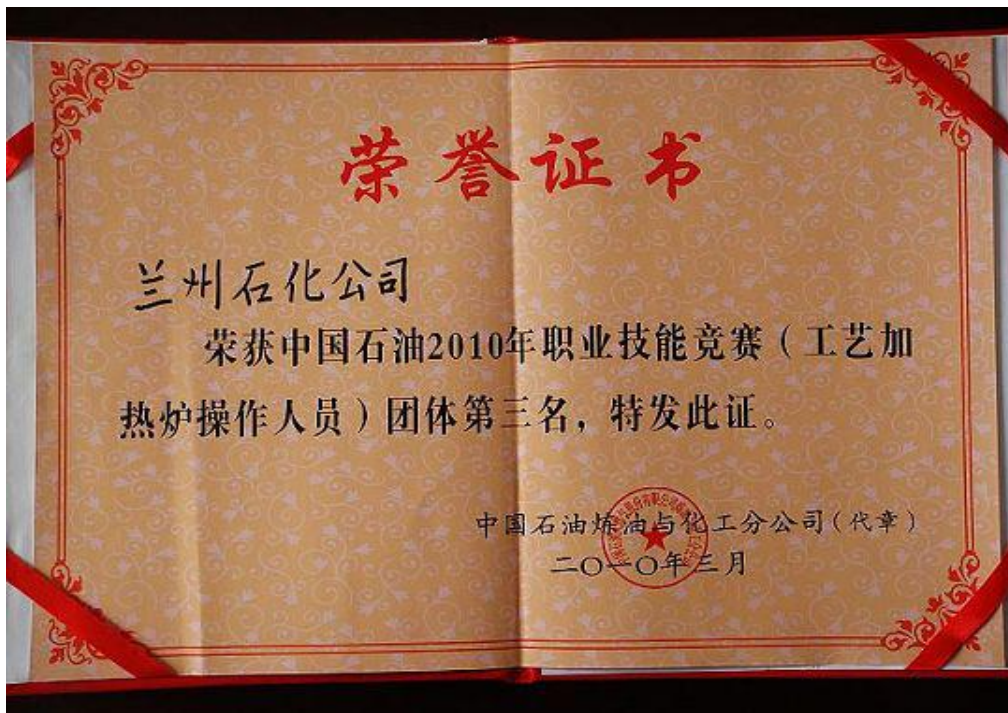 荣誉证书
兰州石化公司
荣获中国石油2010年职业技能竞赛（工艺加
热炉操作人员）团体第三名，特发此证。
中国石油炼油与化工分公司（代章）
二〇一〇年三月